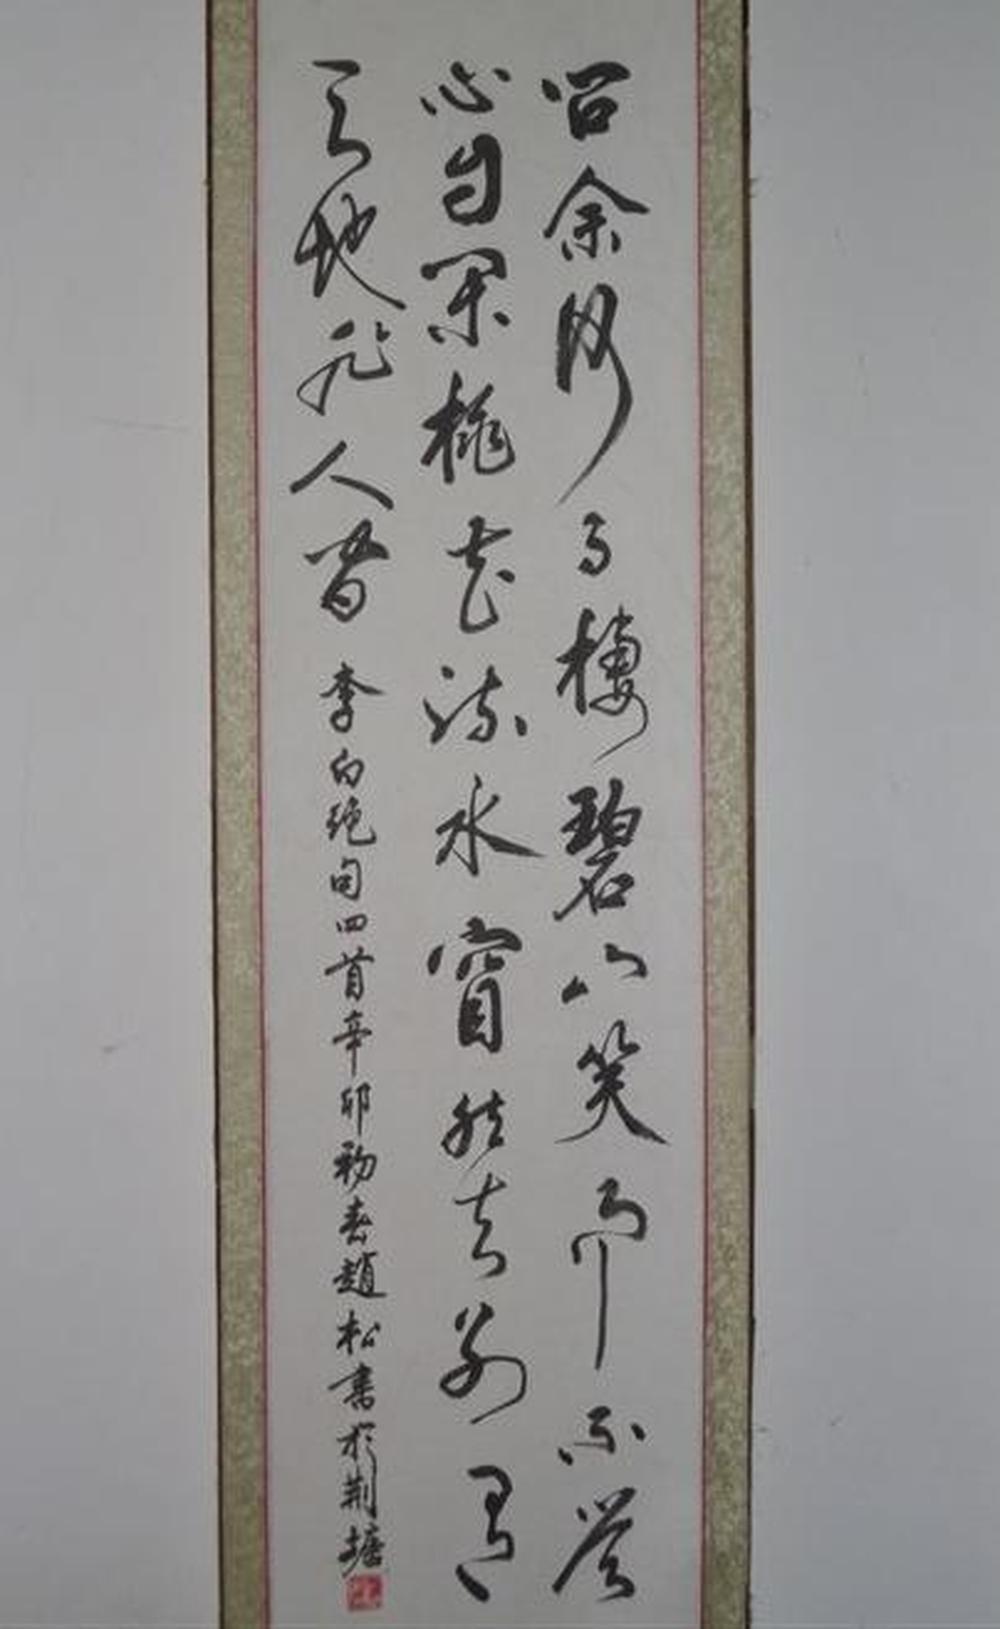 問余何事棲碧山笑而不答
心自閑桃花流水窅然去別有
天地非人間 李白絕句四首辛卯初春趙松書於荆塘